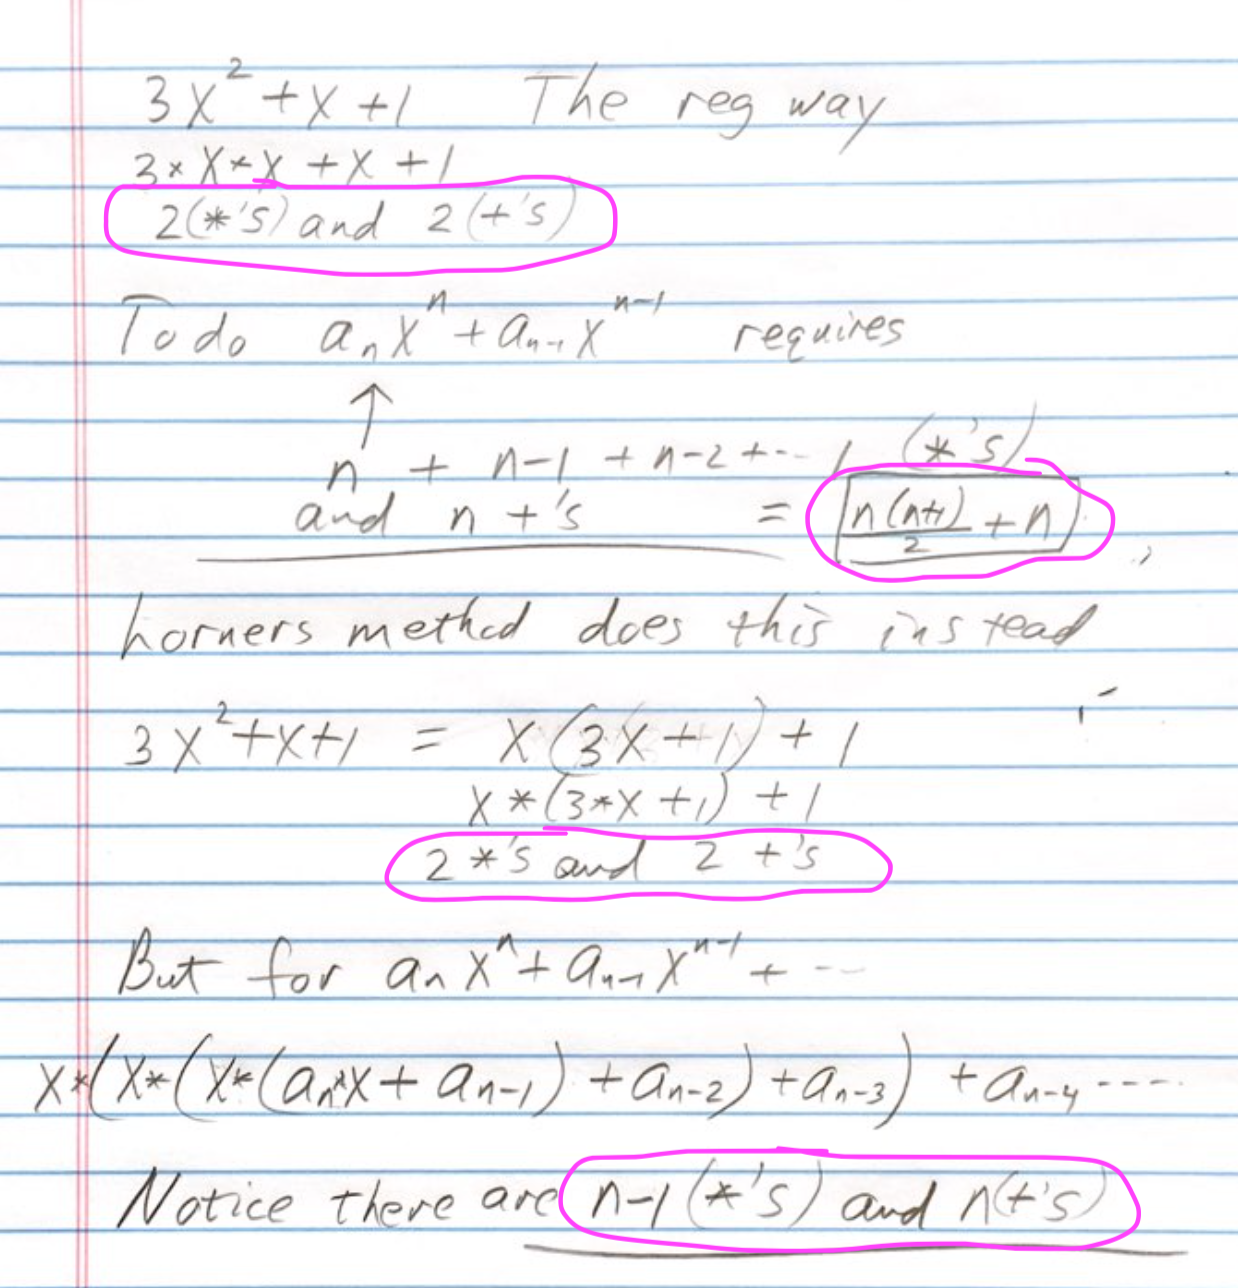 3x² + x + 1 The reg way
3 * x * x + x + 1
2(*'s) and 2(+'s)
To do aₙxⁿ + aₙ₋₁xⁿ⁻¹ requires
↑
n + n-1 + n-2 + ... 1 (*'s)
and n +'s = n(n+1)/2 + n
horners method does this instead
3x² + x + 1 = x(3x + 1) + 1
x * (3 * x + 1) + 1
2 *'s and 2 +'s
But for aₙxⁿ + aₙ₋₁xⁿ⁻¹ + ...
x*(x*(x*(aₙ*x + aₙ₋₁) + aₙ₋₂) + aₙ₋₃) + aₙ₋₄ ....
Notice there are n-1 (*'s) and n(+'s)